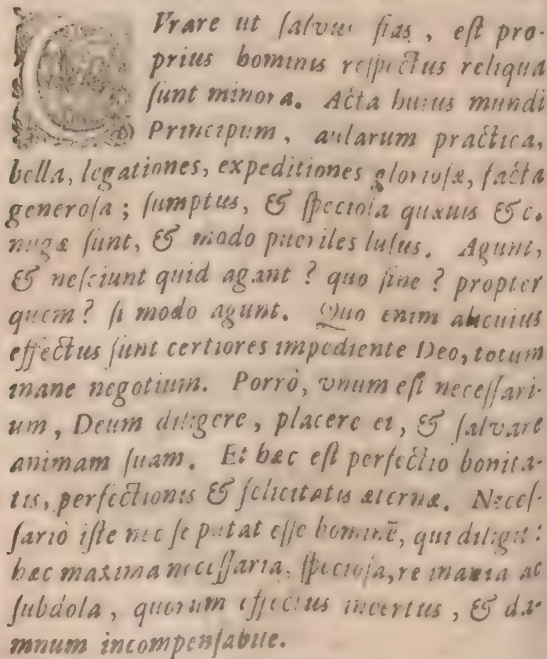 CUrare ut ſalvus fias, eſt pro-
prius hominis reſpectus reliqua
ſunt minora. Acta huius mundi
Principum, aularum practica,
bella, legationes, expeditiones glorioſæ, facta
generoſa; ſumptus, & ſpecioſa quæuis &c.
nugæ ſunt, & modo pueriles luſus. Agunt,
& neſciunt quid agant? quo fine? propter
quem? ſi modo agunt. Quo enim alicuius
effectus ſunt certiores impediente Deo, totum
inane negotium. Porrò, vnum eſt neceſſari-
um, Deum diligere, placere ei, & ſalvare
animam ſuam. Et hæc eſt perfectio bonita-
tis, perfectionis & felicitatis æternæ. Neceſ-
ſariò iſte nec ſe putat eſſe hominē, qui diligit:
hæc maxima neceſſaria, ſpecioſa, re inania ac
ſubdola, quorum effectus incertus, & da-
mnum incompenſabile.